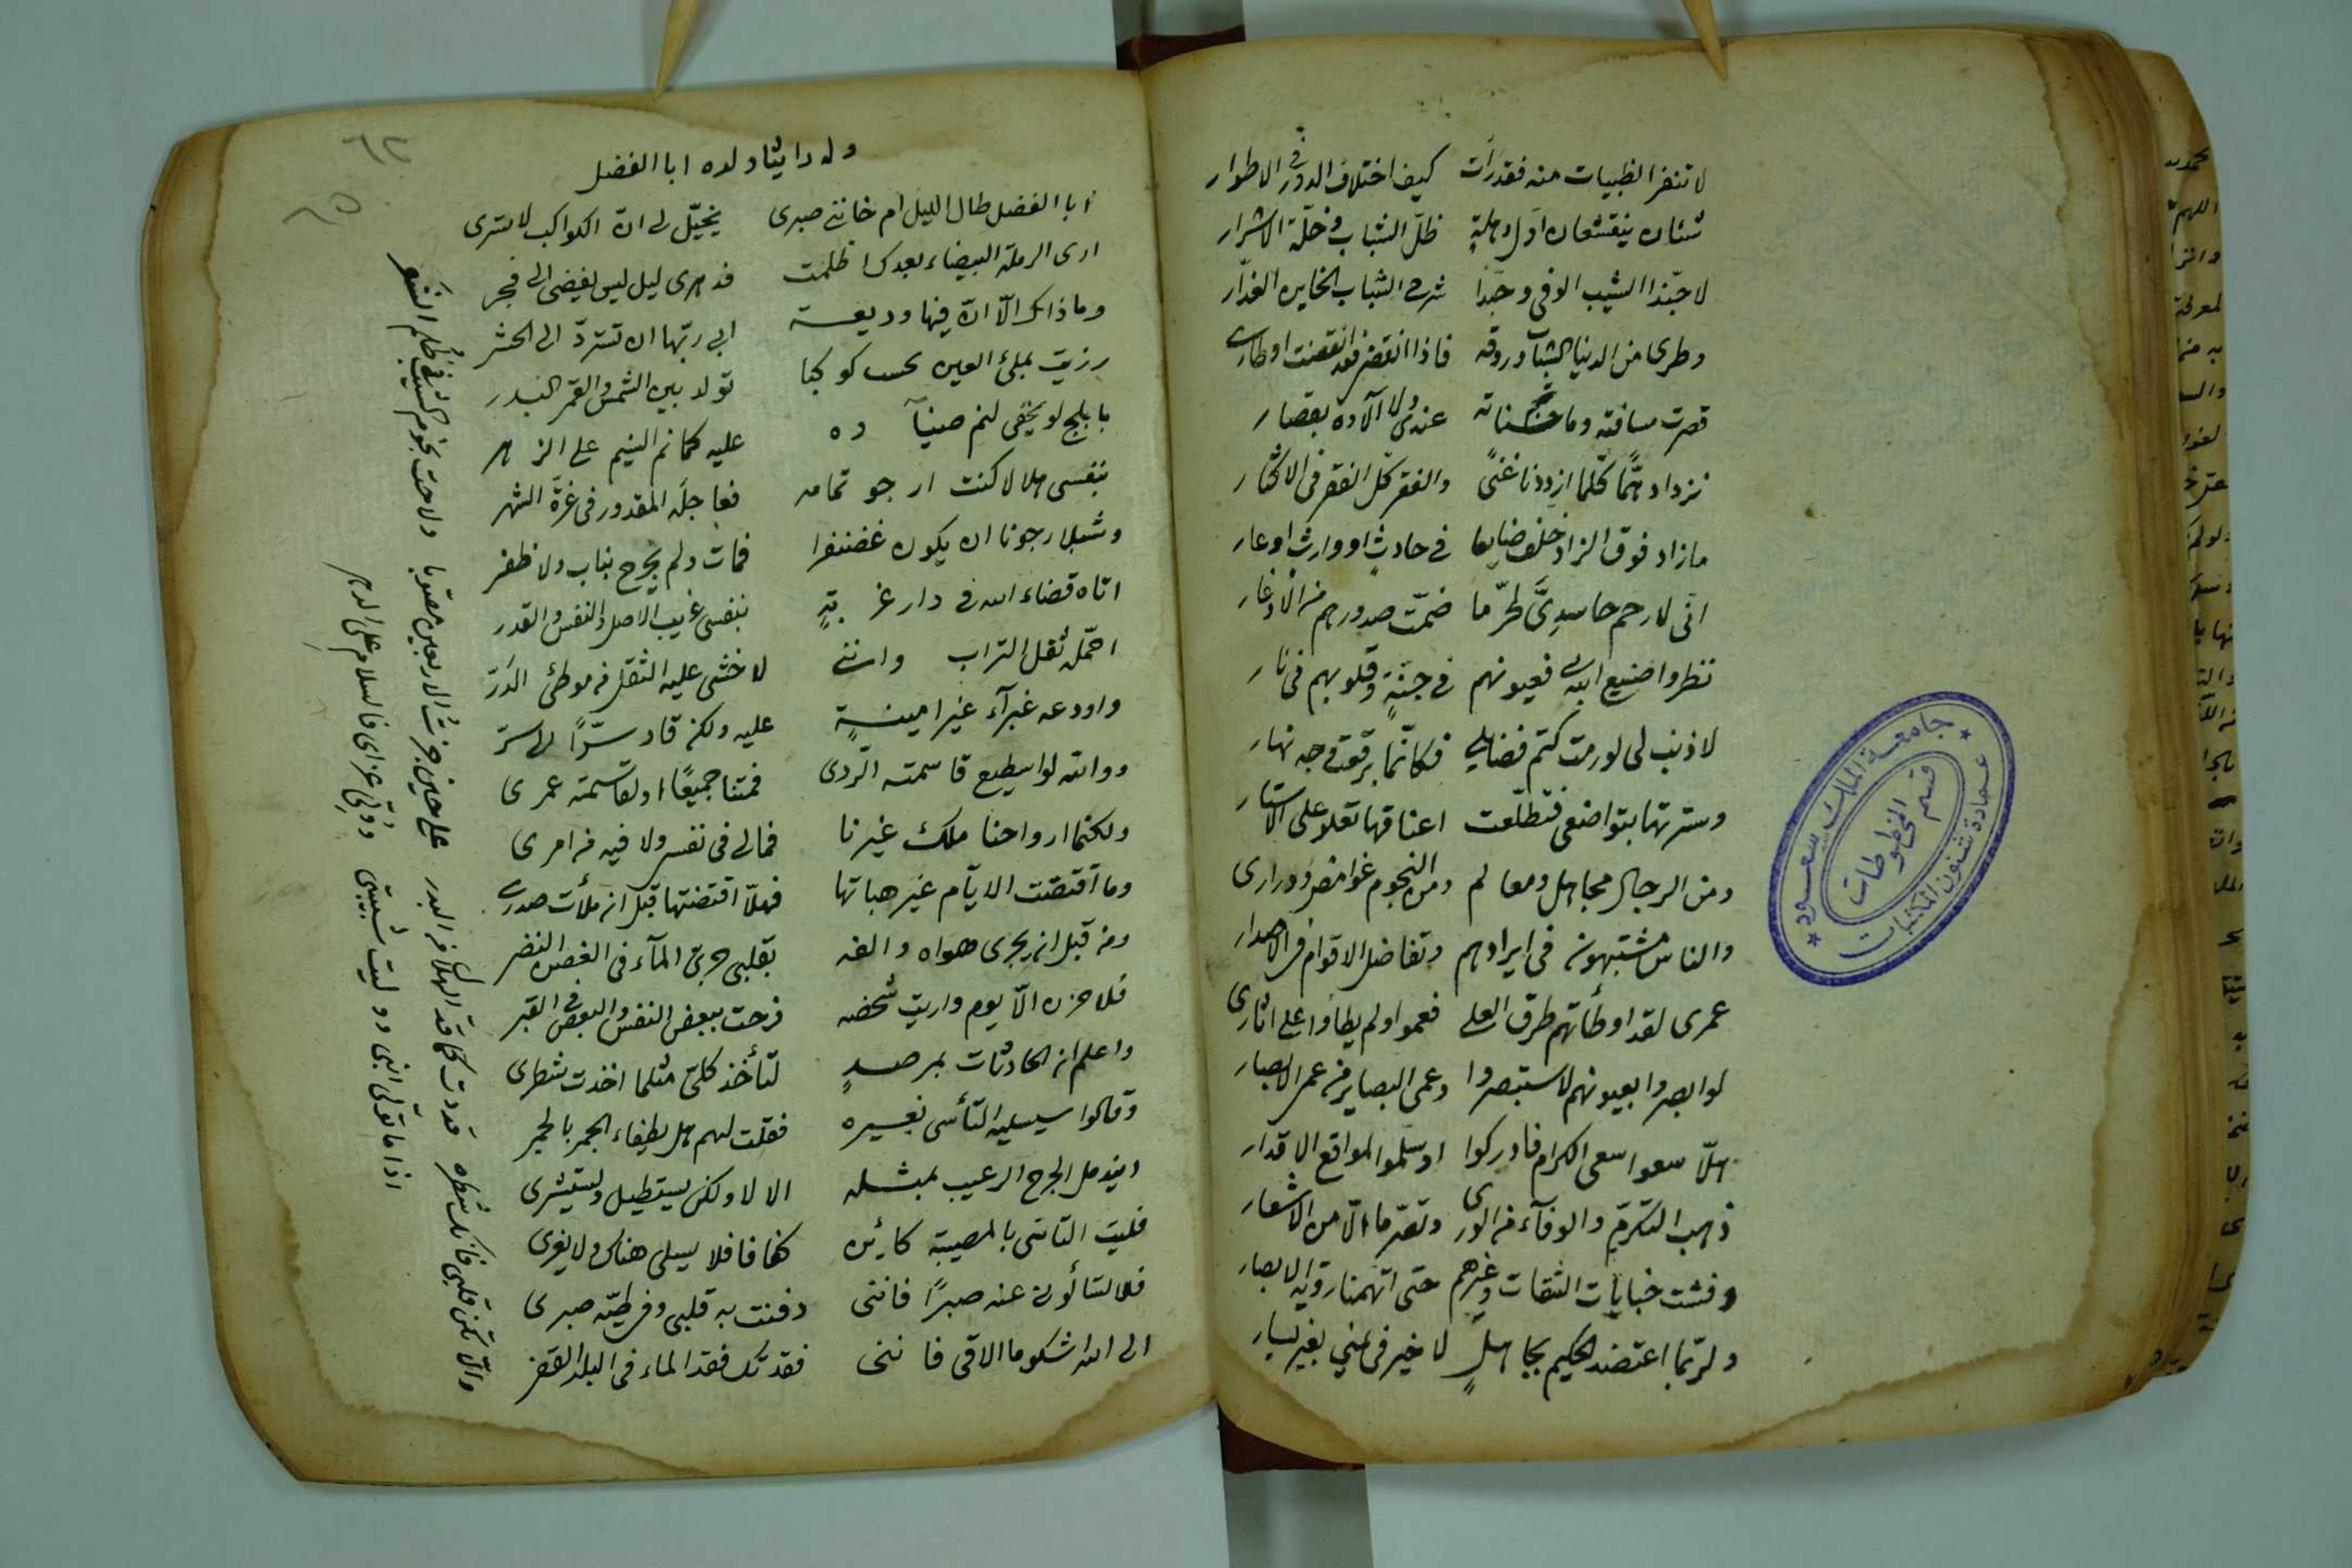 لا تنفر الظبيات منه فقد رأت كيف اختلاف الدور في الاطوار
شيئان ينقشعان اول وهلة ظل الشباب وخلة الاشرار
لا حبذا الشيب الوفي وحبذا شرخ الشباب الخاين الغدار
وطرى من الدنيا الشباب وروقه فاذا انقضى فقد انقضت اوطارى
قصرت مسافته وما حسناته عندى ولا آلاؤه بقصار
نزداد همًّا كلما ازددنا غنىً والفقر كل الفقر فى الاكثار
مازاد فوق الزاد خلف ضايعا في حادثٍ او وارث او عار
انى لارحم حاسدىَّ لحرّ ما ضمّت صدورهم من الاوغار
نظروا صنيع الله بى فعيونهم في جنةٍ وقلوبهم فى نار
لا ذنب لى لو رمت كتم فضايلي فكانّما برقعت وجه نهار
وسترتها بتواضعى فتطلّعت اعناقها تعلو على الاستار
ومن الرجال مجاهل ومعالم ومن النجوم غوامض ودرارى
والناس مشتبهون فى ايرادهم وتفاضل الاقوام فى الاصدار
عمرى لقد اوطأتهم طرق العلى فعموا ولم يطأوا على اثارى
لو ابصروا بعيونهم لاستبصروا وعمى البصاير من عمى الابصار
هلّا سعوا سعى الكرام فادركوا او سلّموا لمواقع الاقدار
ذهب التكرم والوفآء من الورى وتصرما الّا من الاشعار
وفشت خيانات الثقات وغيرهم حتى اتهمنا رؤية الابصار
ولربّما اعتضد الحكيم بجاهلٍ لا خير فى يمني بغير يسار
جامعة الملك سعود
قسم المخطوطات
عمادة شئون المكتبات
٦٢
٦٥
وله راثيا ولده ابا الفضل
ابا الفضل طال الليل ام خاننى صبرى يخيّل لى انّ الكواكب لا تسرى
ارى الرملة البيضاء بعدك اظلمت فدهرى ليل ليس يفضى الى فجر
وما ذاك الّا انّ فيها وديعة ابى ربّها ان تستردّ الى الحشر
رزيت بملئ العين يحسب كوكبا تولد بين الشمس والقمر البدر
بابلج لو يخفى لنم ضيآؤه عليه كما نم النسيم على الزهر
بنفسى هلالا كنت ارجو تمامه فعاجله المقدور فى غرّة الشهر
وشبلا رجونا ان يكون غضنفرا فمات ولم يجرح بناب ولا ظفر
اتاه قضاء الله فى دار غربةٍ بنفسى غريب الاصل والنفس والقدر
احمّله ثقل التراب واننى لاخشى عليه الثقل من موطئ الذرّ
واودعه غبرآء غير امينةٍ عليه ولكن قاد سرّا الى سرّ
ووالله لو اسطيع قاسمته الردى فمتنا جميعًا او لقاسمته عمرى
ولكنما ارواحنا ملك غيرنا فمالى فى نفسى ولا فيه من امرى
وما اقتضت الايّام غير هباتها فهلّا اقتضتها قبل ان ملأت صدرى
ومن قبل ان يجرى هواه والفه بقلبى جرىّ المآء فى الغصن النضر
فلا حزن الّا يوم واريت شخصه فرحت ببعض النفس والبعض فى القبر
واعلم ان الحادثات بمرصدٍ لتأخذ كلىّ مثلما اخذت شطرى
وقالوا سيسليه التأسى بغيره فقلت لهم هل يطفاء الجمر بالجمر
ايندمل الجرح الرعيب بمثله الا لا ولكن يستطيل ويستشرى
فليت التاسّى بالمصيبة كاين كفافا فلا يسلى هناك ولا يغرى
فلا تسألونى عنه صبرًا فاننى دفنت به قلبى وفى طيّه صبرى
الى الله اشكو ما الاقى فاننى فقدتك فقد الماء فى البلد القفر
والّا تكن قلبى فانك شطره قددت كما قد الهلال من البدر
على حين جزت الاربعين مصوّبا ولاحت نجوم الشيب فى ظلم الشعر
اذا ما تولّى ابنى وولت شبيبتى وولّى عزاى فالسلام على الدهر